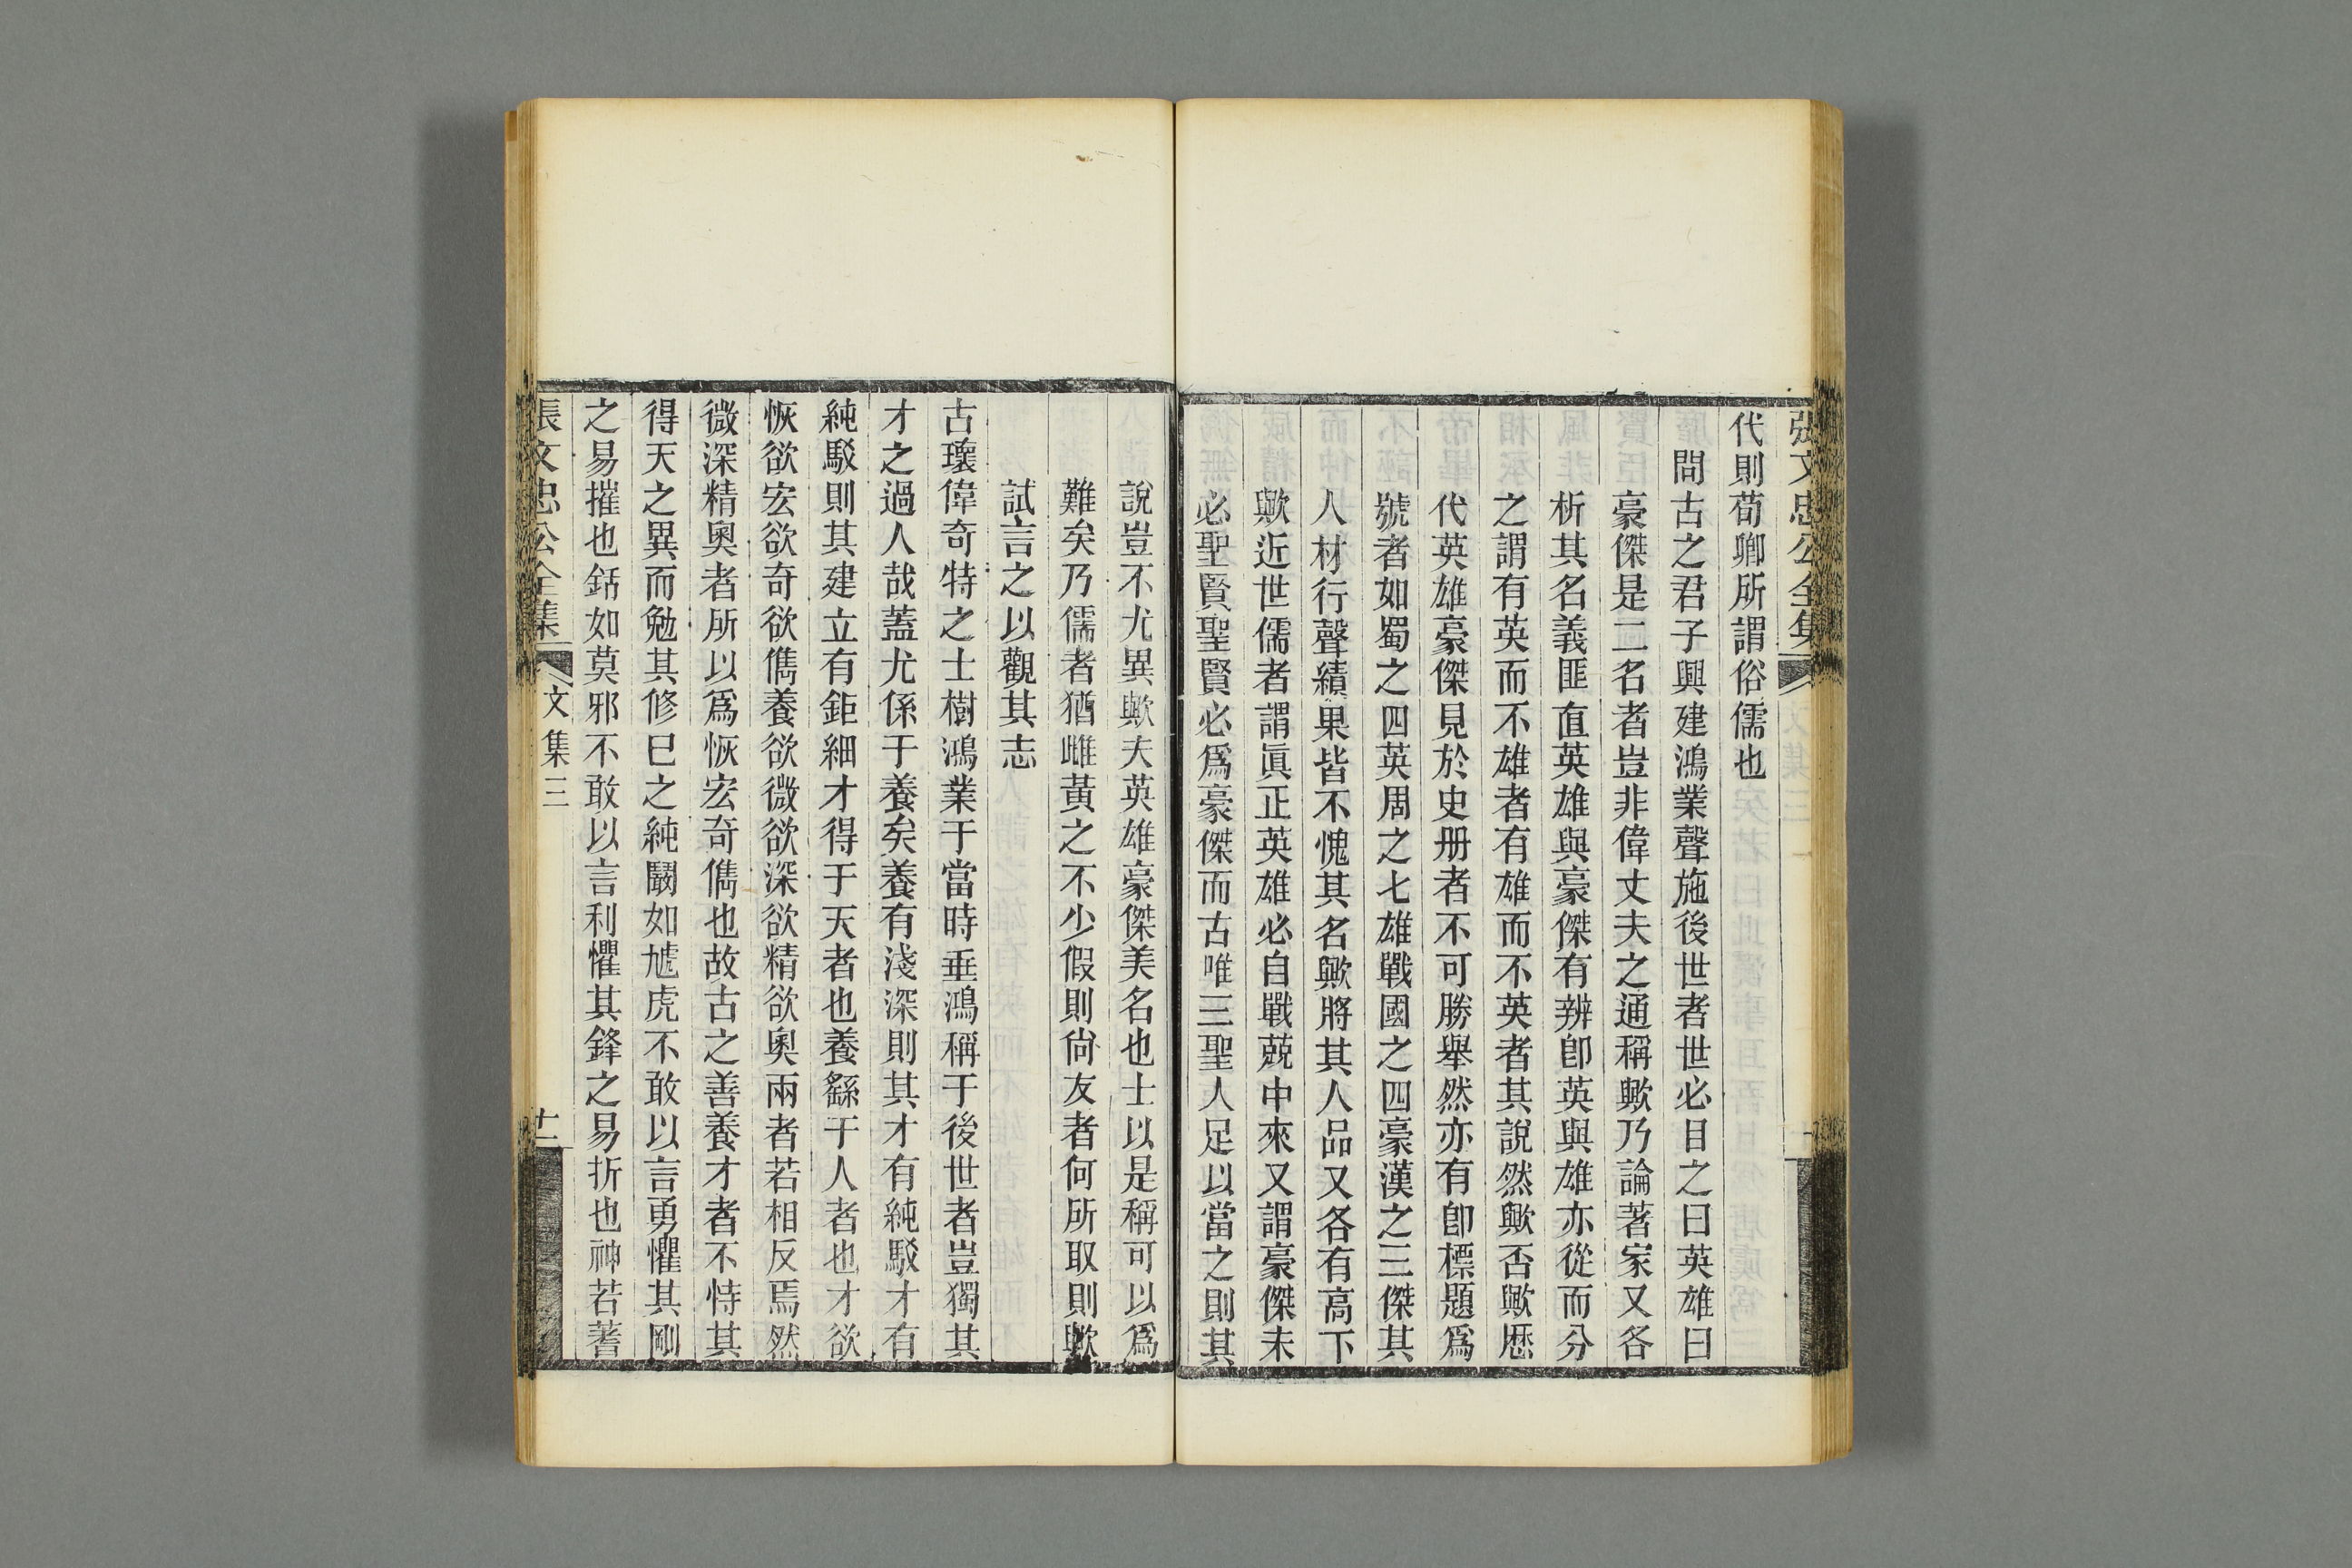 張文忠公全集
代則荀卿所謂俗儒也
問古之君子興建鴻業聲施後世者世必目之曰英雄曰
豪傑是二名者豈非偉丈夫之通稱歟乃論著家又各
析其名義匪直英雄與豪傑有辨卽英與雄亦從而分
之謂有英而不雄者有雄而不英者其說然歟否歟歷
代英雄豪傑見於史册者不可勝舉然亦有卽標題爲
號者如蜀之四英周之七雄戰國之四豪漢之三傑其
人材行聲績果皆不愧其名歟將其人品又各有高下
歟近世儒者謂眞正英雄必自戰兢中來又謂豪傑未
必聖賢聖賢必爲豪傑而古唯三聖人足以當之則其
說豈不尤異歟夫英雄豪傑美名也士以是稱可以爲
難矣乃儒者猶雌黃之不少假則尙友者何所取則歟
試言之以觀其志
古瓌偉奇特之士樹鴻業于當時垂鴻稱于後世者豈獨其
才之過人哉蓋尤係于養矣養有淺深則其才有純駁才有
純駁則其建立有鉅細才得于天者也養繇于人者也才欲
恢欲宏欲奇欲儁養欲微欲深欲精欲奧兩者若相反焉然
微深精奧者所以爲恢宏奇儁也故古之善養才者不恃其
得天之異而勉其修已之純鬬如虓虎不敢以言勇懼其剛
之易摧也銛如莫邪不敢以言利懼其鋒之易折也神若蓍
張文忠公全集
文集三
十二